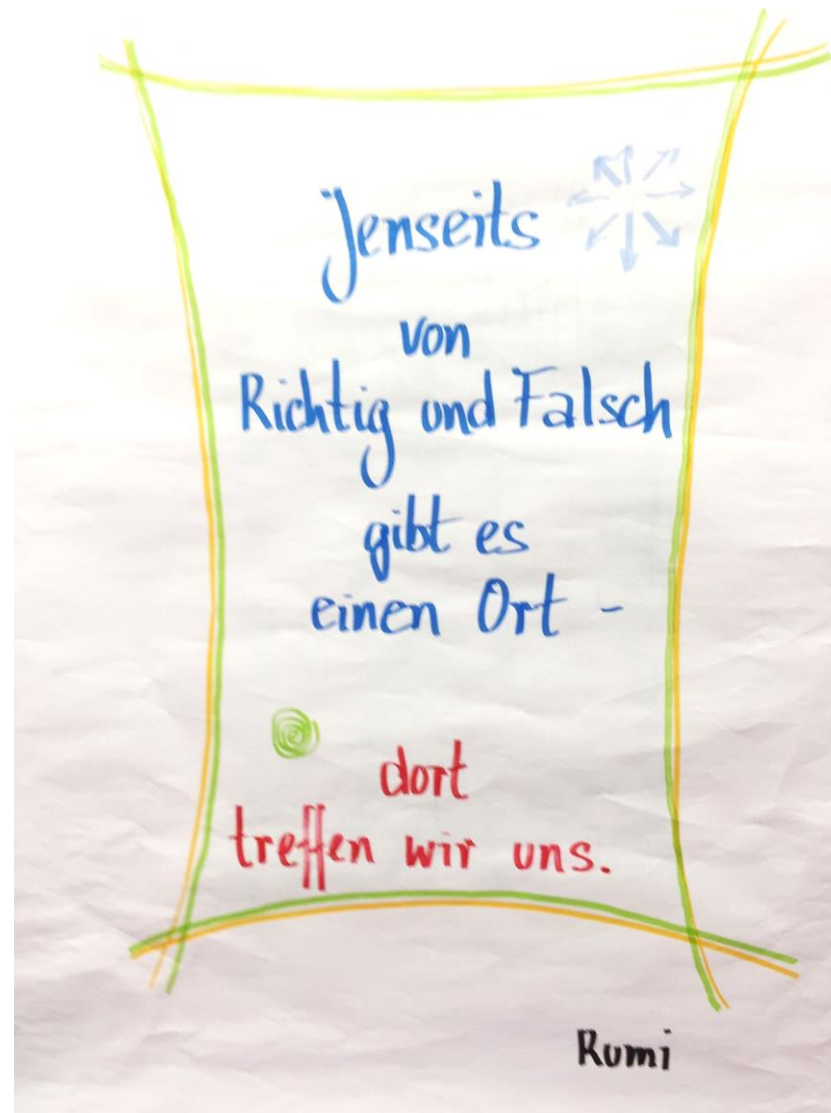 Jenseits
von
Richtig und Falsch
gibt es
einen Ort -
dort
treffen wir uns.
Rumi